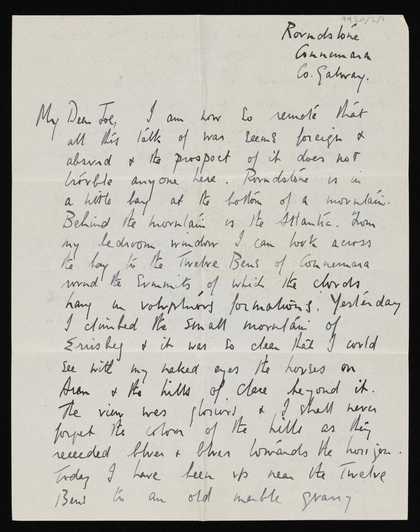 Roundstone
Connemara
Co. Galway.
My Dear Joe, I am now so remote that
all this talk of war seems foreign &
absurd & the prospect of it does not
trouble anyone here. Roundstone is in
a little bay at the bottom of a mountain.
Behind the mountain is the Atlantic. From
my bedroom window I can look across
the bay to the Twelve Bens of Connemara
round the summits of which the clouds
hang in voluptuous formations. Yesterday
I climbed the small mountain of
Errisbeg & it was so clear that I could
see with my naked eyes the houses on
Aran & the hills of Clare beyond it.
The view was glorious & I shall never
forget the colour of the hills as they
receeded blue & blue towards the horizon.
Today I have been up near the Twelve
Bens to an old marble quarry